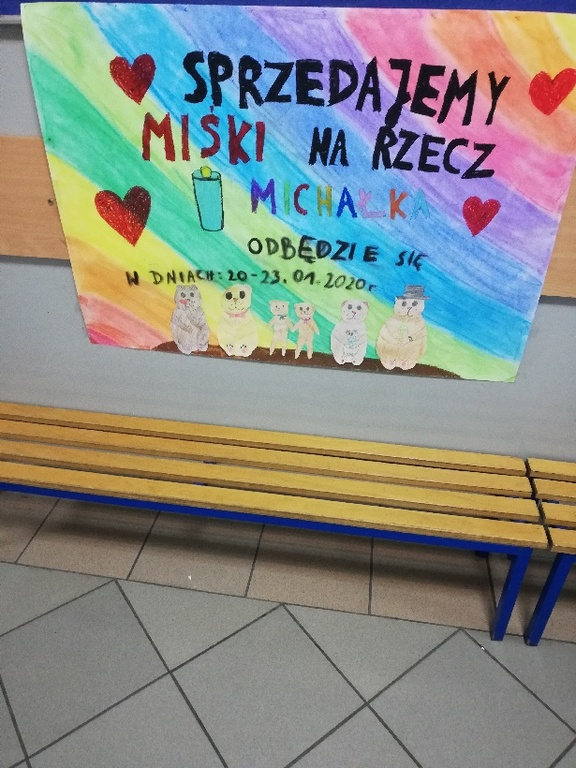 SPRZEDAJEMY
MIŚKI NA RZECZ
MICHAŁKA
ODBĘDZIE SIĘ
W DNIACH: 20-23.01.2020r.